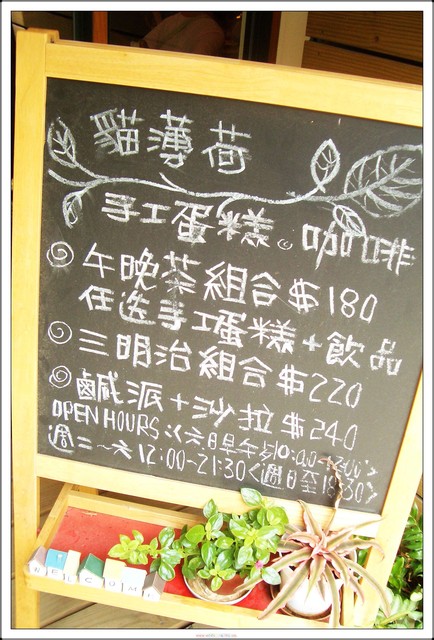 貓薄荷
手工蛋糕。咖啡
午晚茶組合$180
任选手工蛋糕+飲品
三明治組合$220
鹹派+沙拉$240
OPEN HOURS
週二~六12:00-21:30<週日至18:30>
WELCOME